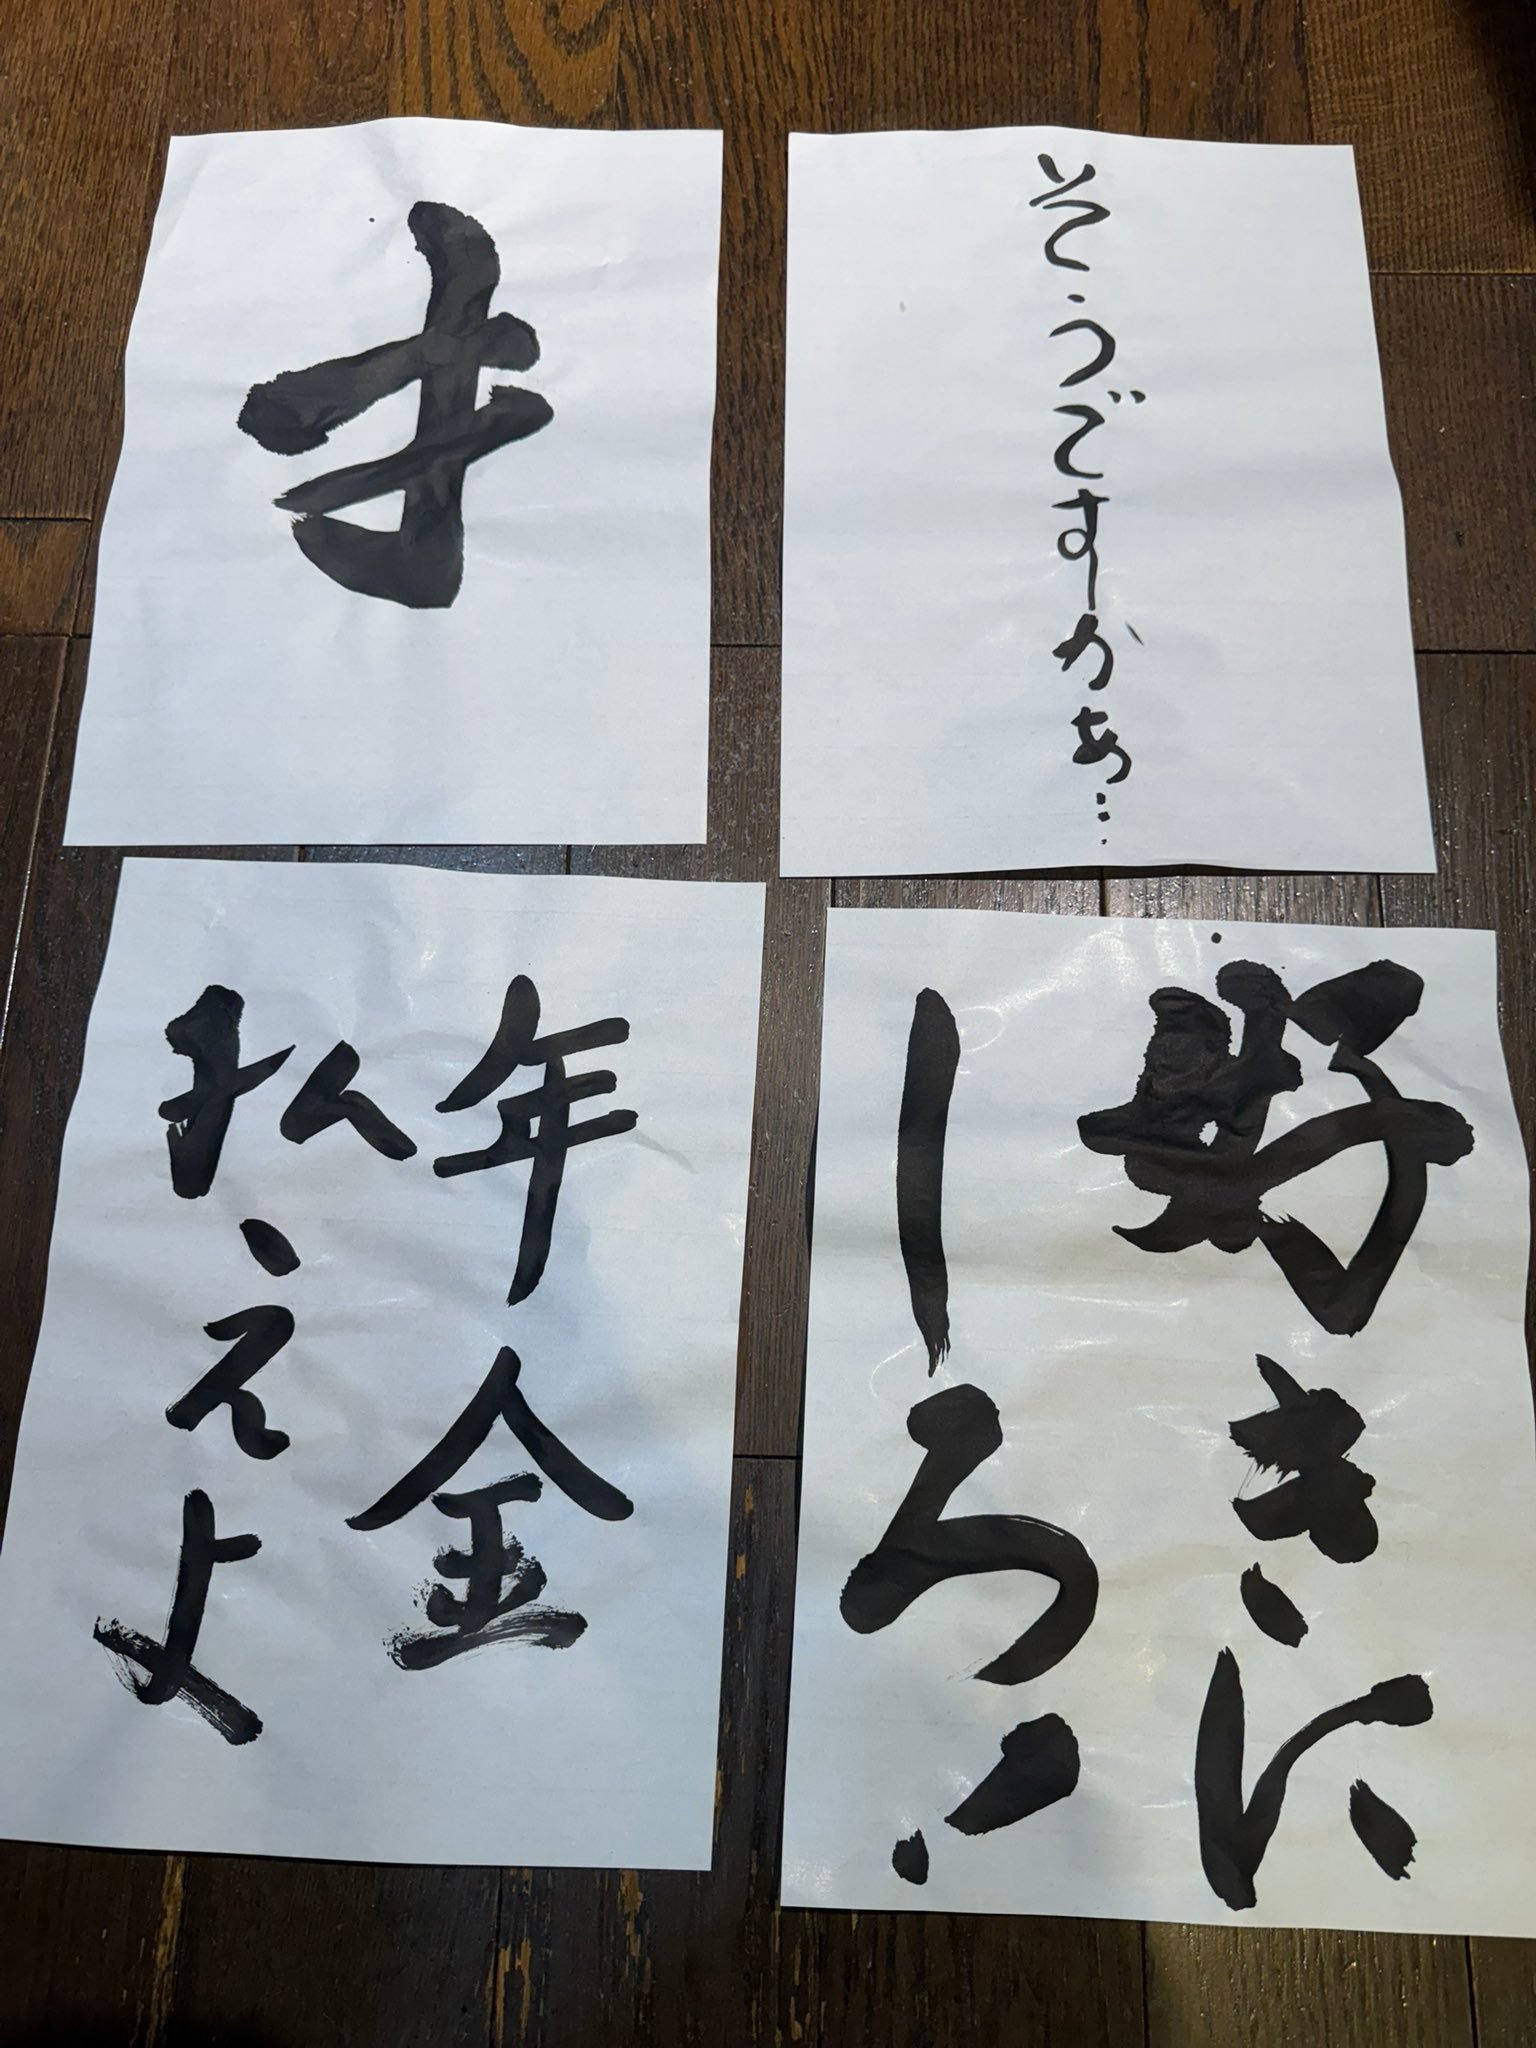 扌
そうですかぁ…
年金
払えよ
好きに
しろ！